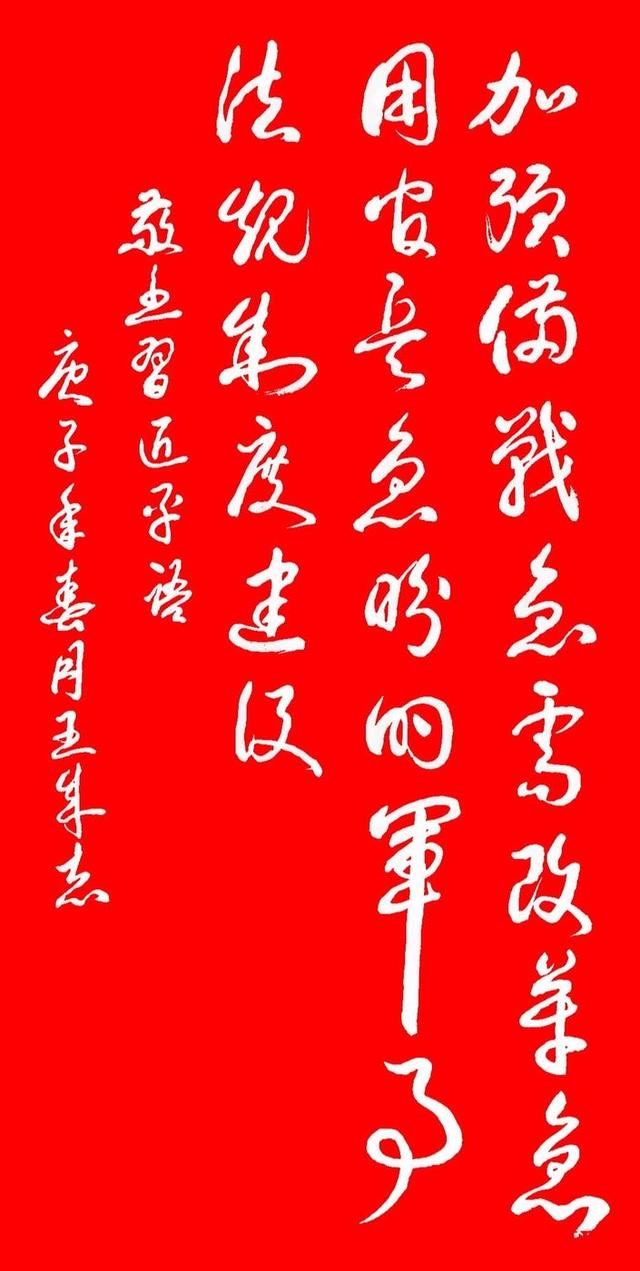 加强備戰急需改革急
用官兵急盼的軍事
法規制度建設
敬書習近平語
庚子年春月王成志